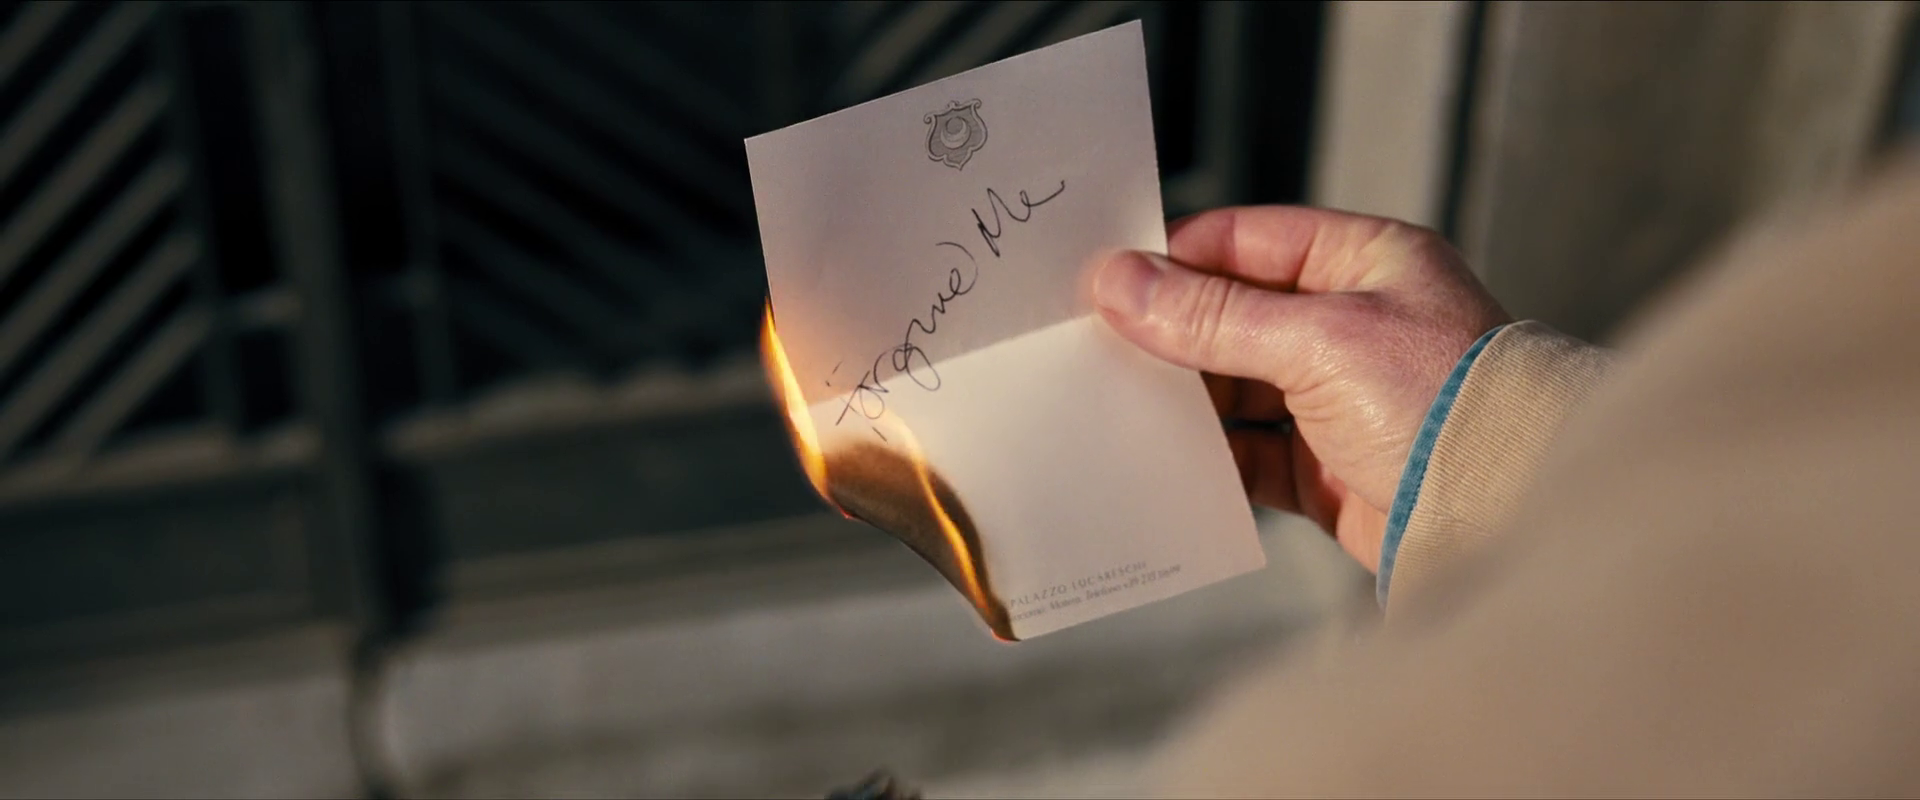 Forgive Me
PALAZZO LUCARESCHI
Matera. Telefono +39 235